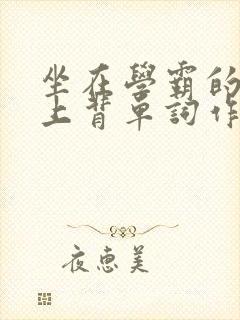 坐在學霸的
上背單詞作
夜惠美